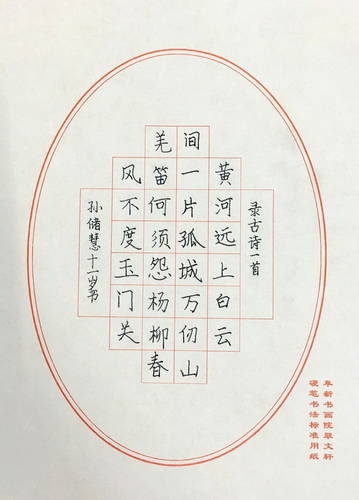 录古诗一首
黄河远上白云
间一片孤城万仞山
羌笛何须怨杨柳春
风不度玉门关
孙储慧十一岁书
阜新书画院翠文轩
硬笔书法标准用纸